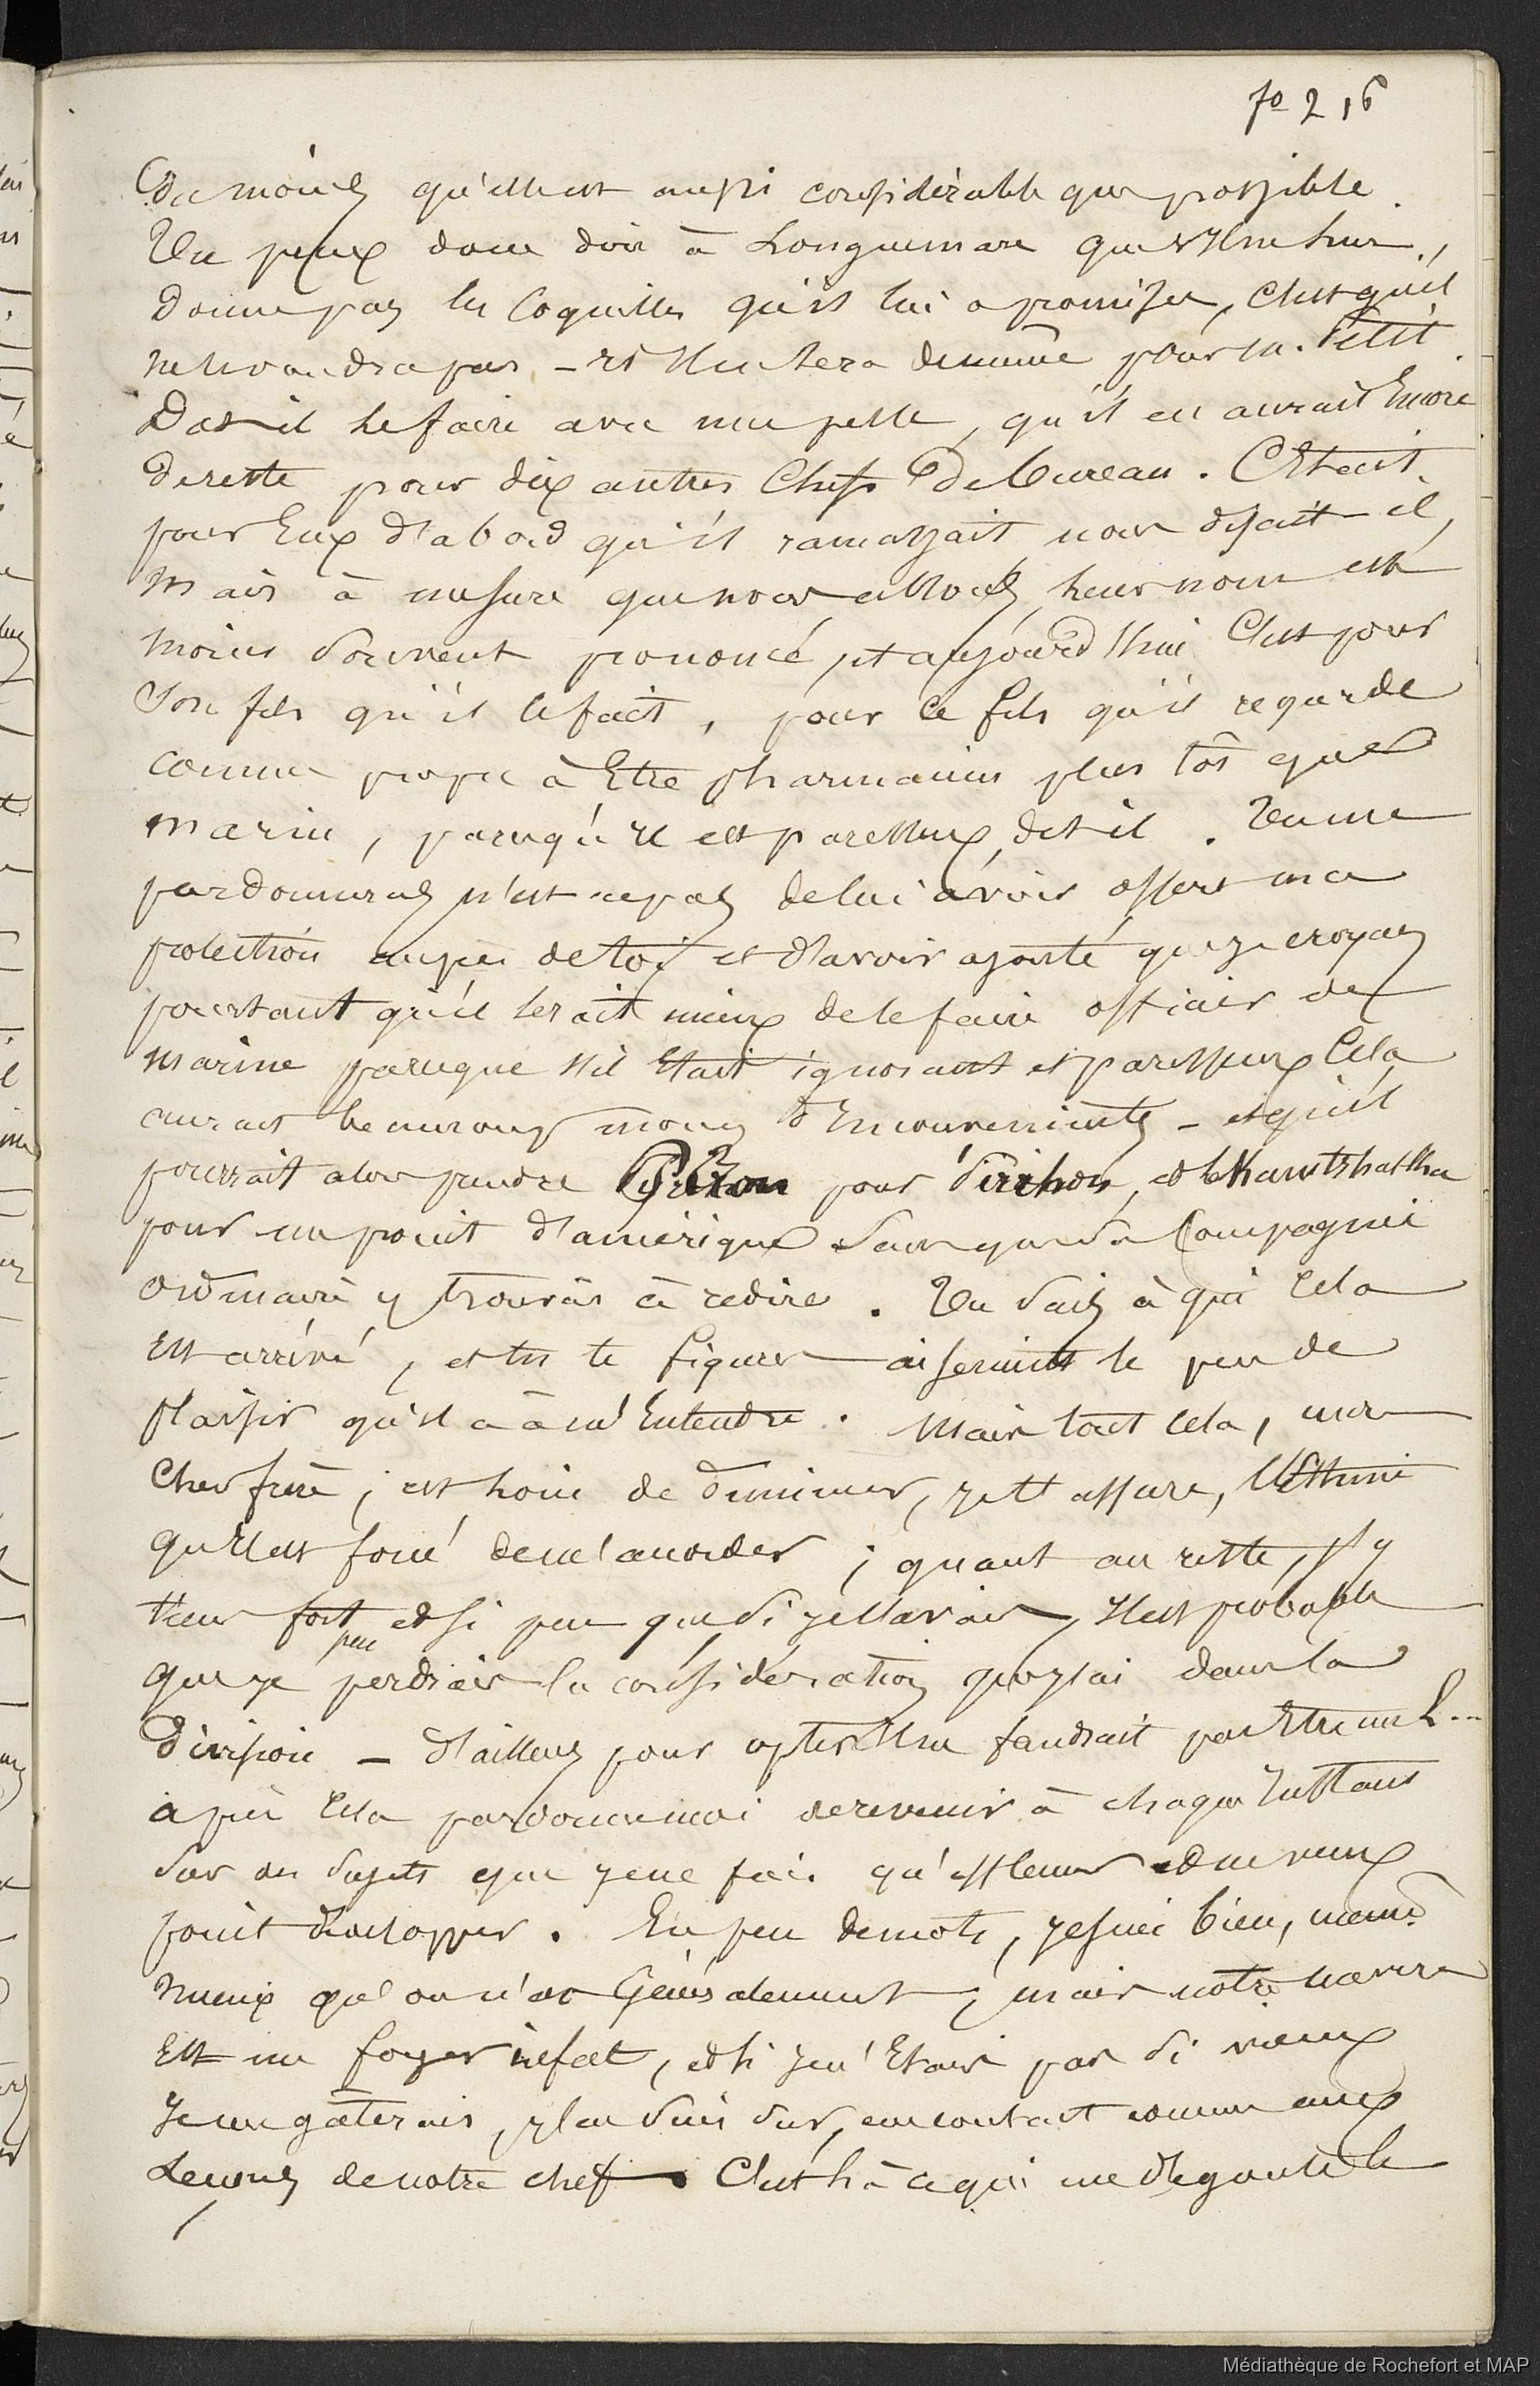 fo 216
Du moins qu'elle est aussi considérable que possible.
Tu peux donc dire à Longuemare que s'il ne leur
donne pas les Coquilles qu'il lui a promises, c'est qu'il
ne le voudra pas - Il en sera de même pour m. Petit
Doit-il le faire avec une pelle, qu'il en aurait Encore
de reste pour dix autres Chefs de bureau. C'Etait
pour Eux d'abord qu'il ramassait nous disait-il,
mais à mesure que nous allons, leur nom est
moins souvent prononcé, et aujourd'hui C'est pour
Son fils qu'il le fait, pour ce fils qu'il regarde
comme propre à Etre pharmacien plus tôt que
marin, parcequ'il est paresseux, dit il. Tu me
pardonneras n'est-ce pas de lui avoir offert ma
protection auprès de toi et d'avoir ajouté que je croyais
pourtant qu'il serait mieux de le faire officier de
marine parceque s'il Etait ignorant et paresseux Cela
aurait beaucoup moins d'Inconvenients - et qu'il
pourrait alors prendre pour et le Kamtshatka
pour un point d'amérique sans que sa Compagnie
ordinaire y trouvât à redire. Tu sais à qui Cela
Est arrivé, et tu te figures aisement le peu de
plaisir qu'il a à m'Entendre. Mais tout cela, mon
Cher frère, est loin de diminuer, je t'assure, l'Estime
qu'il est forcé de m'accorder; quant au reste, j'y
tiens fort peu et si peu que si je l'avais, il est probable
que je perdrais la considération que j'ai dans la
Division - d'ailleurs pour opter il me faudrait pas Etre un L...
après Cela pardonne moi de revenir à chaque Instant
sur des sujets que je ne fais qu'effleurer et ne veux
point developper. En peu de mots, je suis bien, même
mieux qu'on n'est Généralement, mais notre navire
Est un foyer infect, et si je n'Etais pas si vieux
Je me gâterais, j'en suis sur, au contact comme aux
Leçons de notre chef. C'est là ce qui me dégoute le